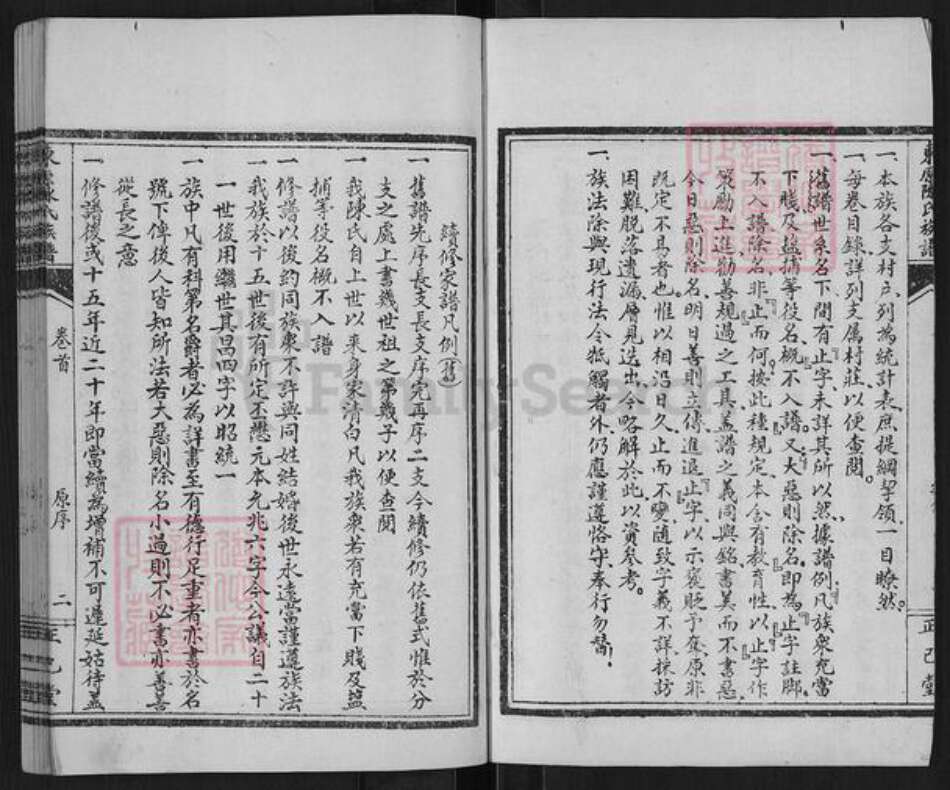 一、本族各支村戶列為統計表庶提綱挈領一目瞭然。
一、每卷目錄詳列支属村莊以便查閱。
一、舊譜世系名下間有止字、未詳其所以然、據譜例凡族衆充當
下賤及盜捕等役名概不入譜。又大惡則除名。即為止字註脚。
不入譜除名非止而何。按此種規定、本含有教育性、以止字作
策勵上進勸善規過之工具、盖譜之義同與銘、書美而不書惡
今日惡則除名、明日善則立傳、進退止字、以示褒貶予奪、原非
既定不易者也。惟以相沿日久、止而不變、隨致字義不詳、採訪
困難、脱落遺漏、層見迭出、今略解於此、以資參考。
一、族法除與現行法令抵觸者外、仍應謹遵恪守奉行勿替。
續修家譜凡例(舊)
一舊譜先序長支長支序完再序二支今續修仍依舊式惟於分
支之處上書幾世祖之第幾子以便查閱
一我陳氏自上世以來身家清白凡我族衆若有充當下賤及盜
捕等役名概不入譜
一修譜以後約同族衆不許與同姓結婚後世永遠當謹遵族法
一我族於十五世後有所定丕懋元本允兆六字今公議自二十
一世後用繼世其昌四字以昭統一
一族中凡有科第名爵者必為詳書至有德行足重者亦書於名
號下俾後人皆知所法若大惡則除名小過則不必書亦善善
從長之意
一修譜後或十五年近二十年即當續為增補不可遲延姑待盖
東原陳氏族譜
卷首
原序
二
正己堂